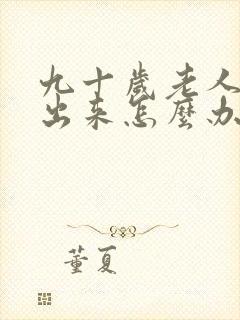 九十歲老人
出来怎麼办
董夏